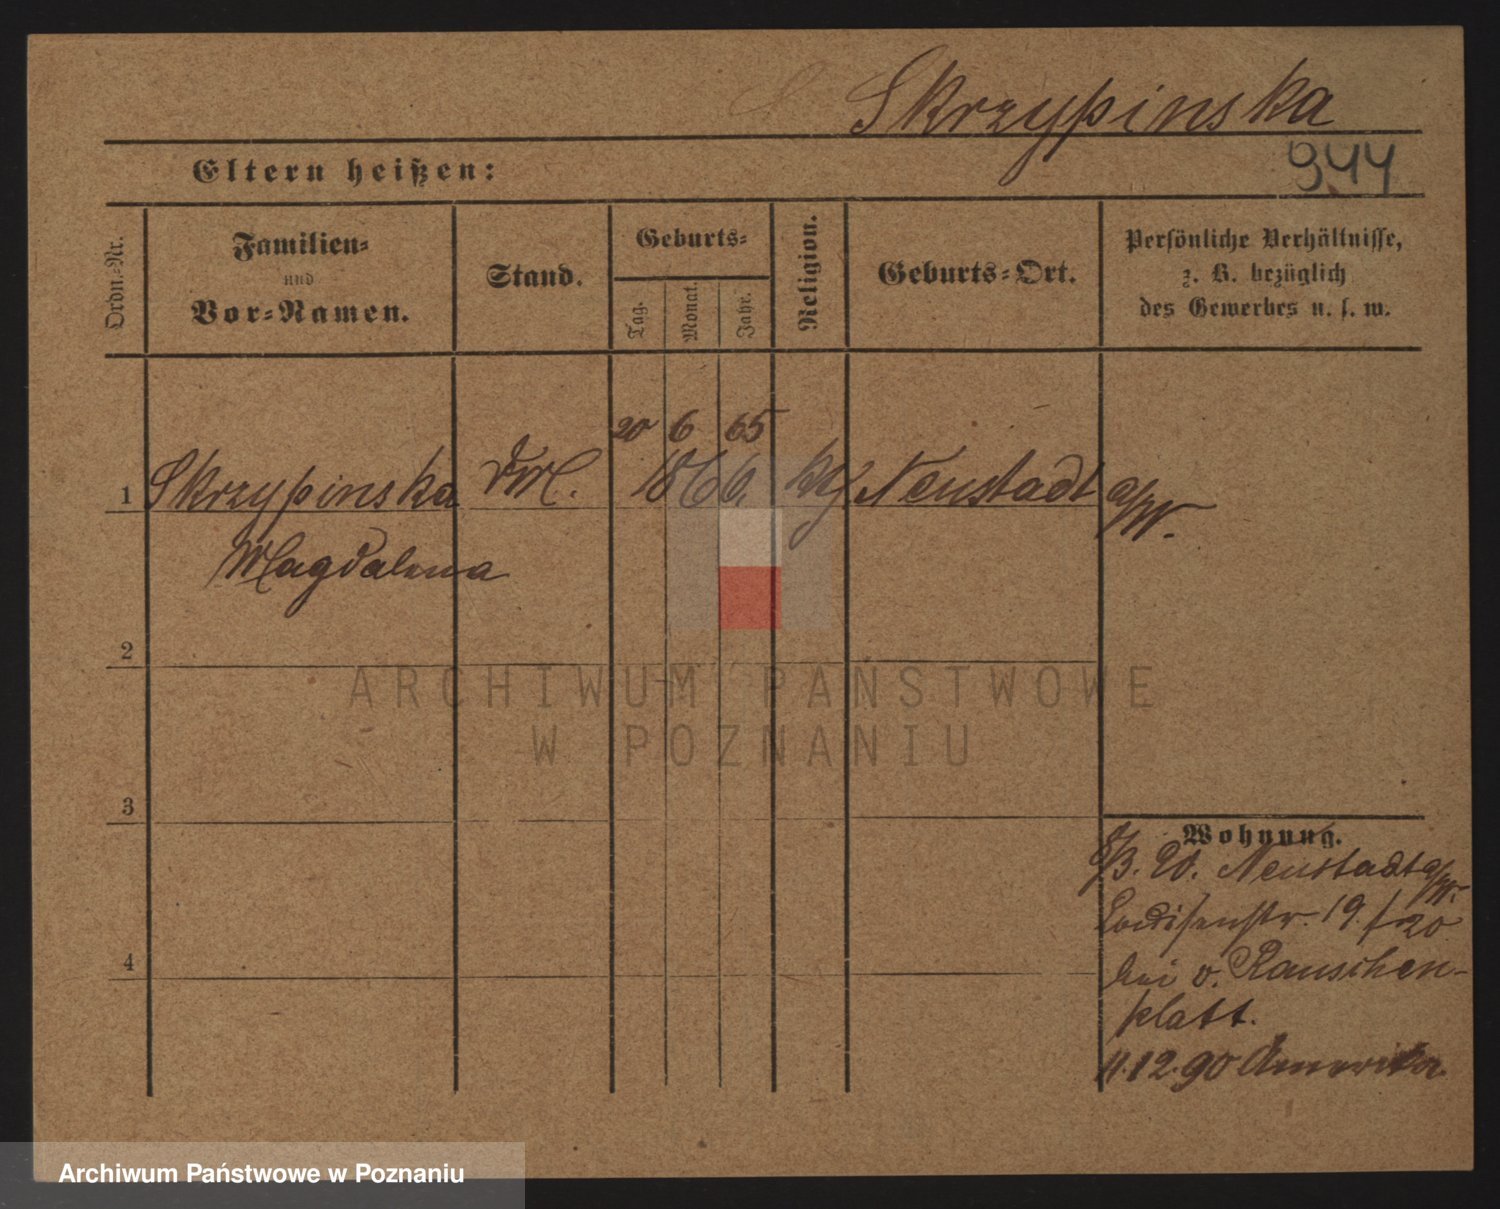 Skrzypinska
944
Eltern heißen:
Ordn.-Nr.
Familien-
und
Vor-Namen.
Stand.
Geburts-
Tag.
Monat.
Jahr.
Religion.
Geburts-Ort.
Persönliche Verhältnisse,
z. B. bezüglich
des Gewerbes u. s. w.
20 6 65
1 Skrzypinska 1866. Neustadt a/W.
Magdalena
2
3
4
Wohnung.
8/3. 90. Neustadt a/W.
Louisenstr. 19. / 20
bei v. Rauschen-
platt.
11.12.90 Amerika.
ARCHIWUM PAŃSTWOWE
W POZNANIU
Archiwum Państwowe w Poznaniu